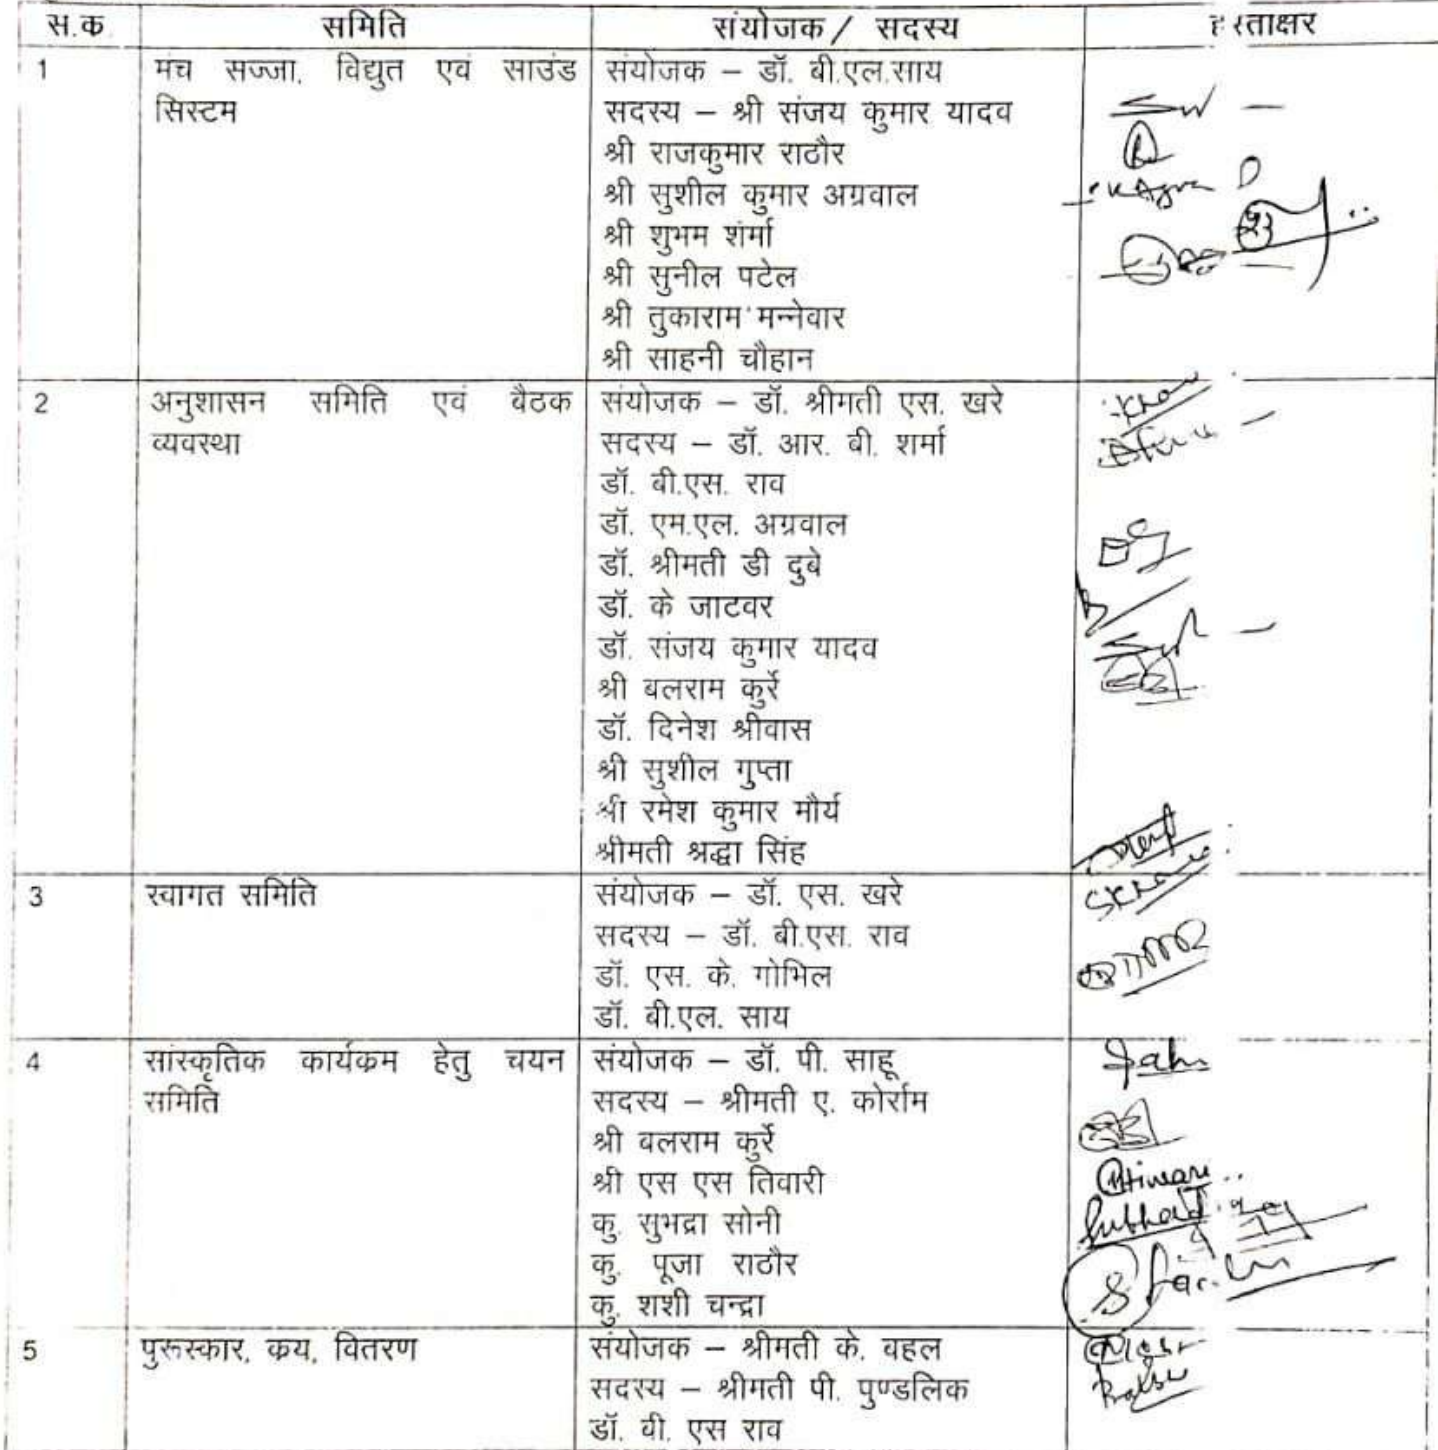 स.क. समिति संयोजक / सदस्य हस्ताक्षर
1 मंच सज्जा, विद्युत एवं साउंड संयोजक – डॉ. बी.एल.साय
सिस्टम सदस्य – श्री संजय कुमार यादव
श्री राजकुमार राठौर
श्री सुशील कुमार अग्रवाल
श्री शुभम शर्मा
श्री सुनील पटेल
श्री तुकाराम मन्नेवार
श्री साहनी चौहान
2 अनुशासन समिति एवं बैठक संयोजक – डॉ. श्रीमती एस. खरे
व्यवस्था सदस्य – डॉ. आर. बी. शर्मा
डॉ. बी.एस. राव
डॉ. एम.एल. अग्रवाल
डॉ. श्रीमती डी दुबे
डॉ. के जाटवर
डॉ. संजय कुमार यादव
श्री बलराम कुर्रे
डॉ. दिनेश श्रीवास
श्री सुशील गुप्ता
श्री रमेश कुमार मौर्य
श्रीमती श्रद्धा सिंह
3 स्वागत समिति संयोजक – डॉ. एस. खरे
सदस्य – डॉ. बी.एस. राव
डॉ. एस. के. गोभिल
डॉ. बी.एल. साय
4 सांस्कृतिक कार्यक्रम हेतु चयन संयोजक – डॉ. पी. साहू
समिति सदस्य – श्रीमती ए. कोर्राम
श्री बलराम कुर्रे
श्री एस एस तिवारी
कु. सुभद्रा सोनी
कु. पूजा राठौर
कु. शशी चन्द्रा
5 पुरूस्कार, क्रय, वितरण संयोजक – श्रीमती के. बहल
सदस्य – श्रीमती पी. पुण्डलिक
डॉ. वी. एस राव